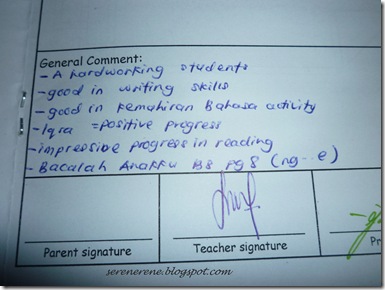 General Comment:
- A hardworking students
- good in writing skills
- good in kemahiran Bahasa activity
- Iqra = positive progress
- impressible progress in reading
- Bacalah Anakku B8 pg 8 (ng - e)
Parent signature
Teacher signature
Pr
serenerene.blogspot.com